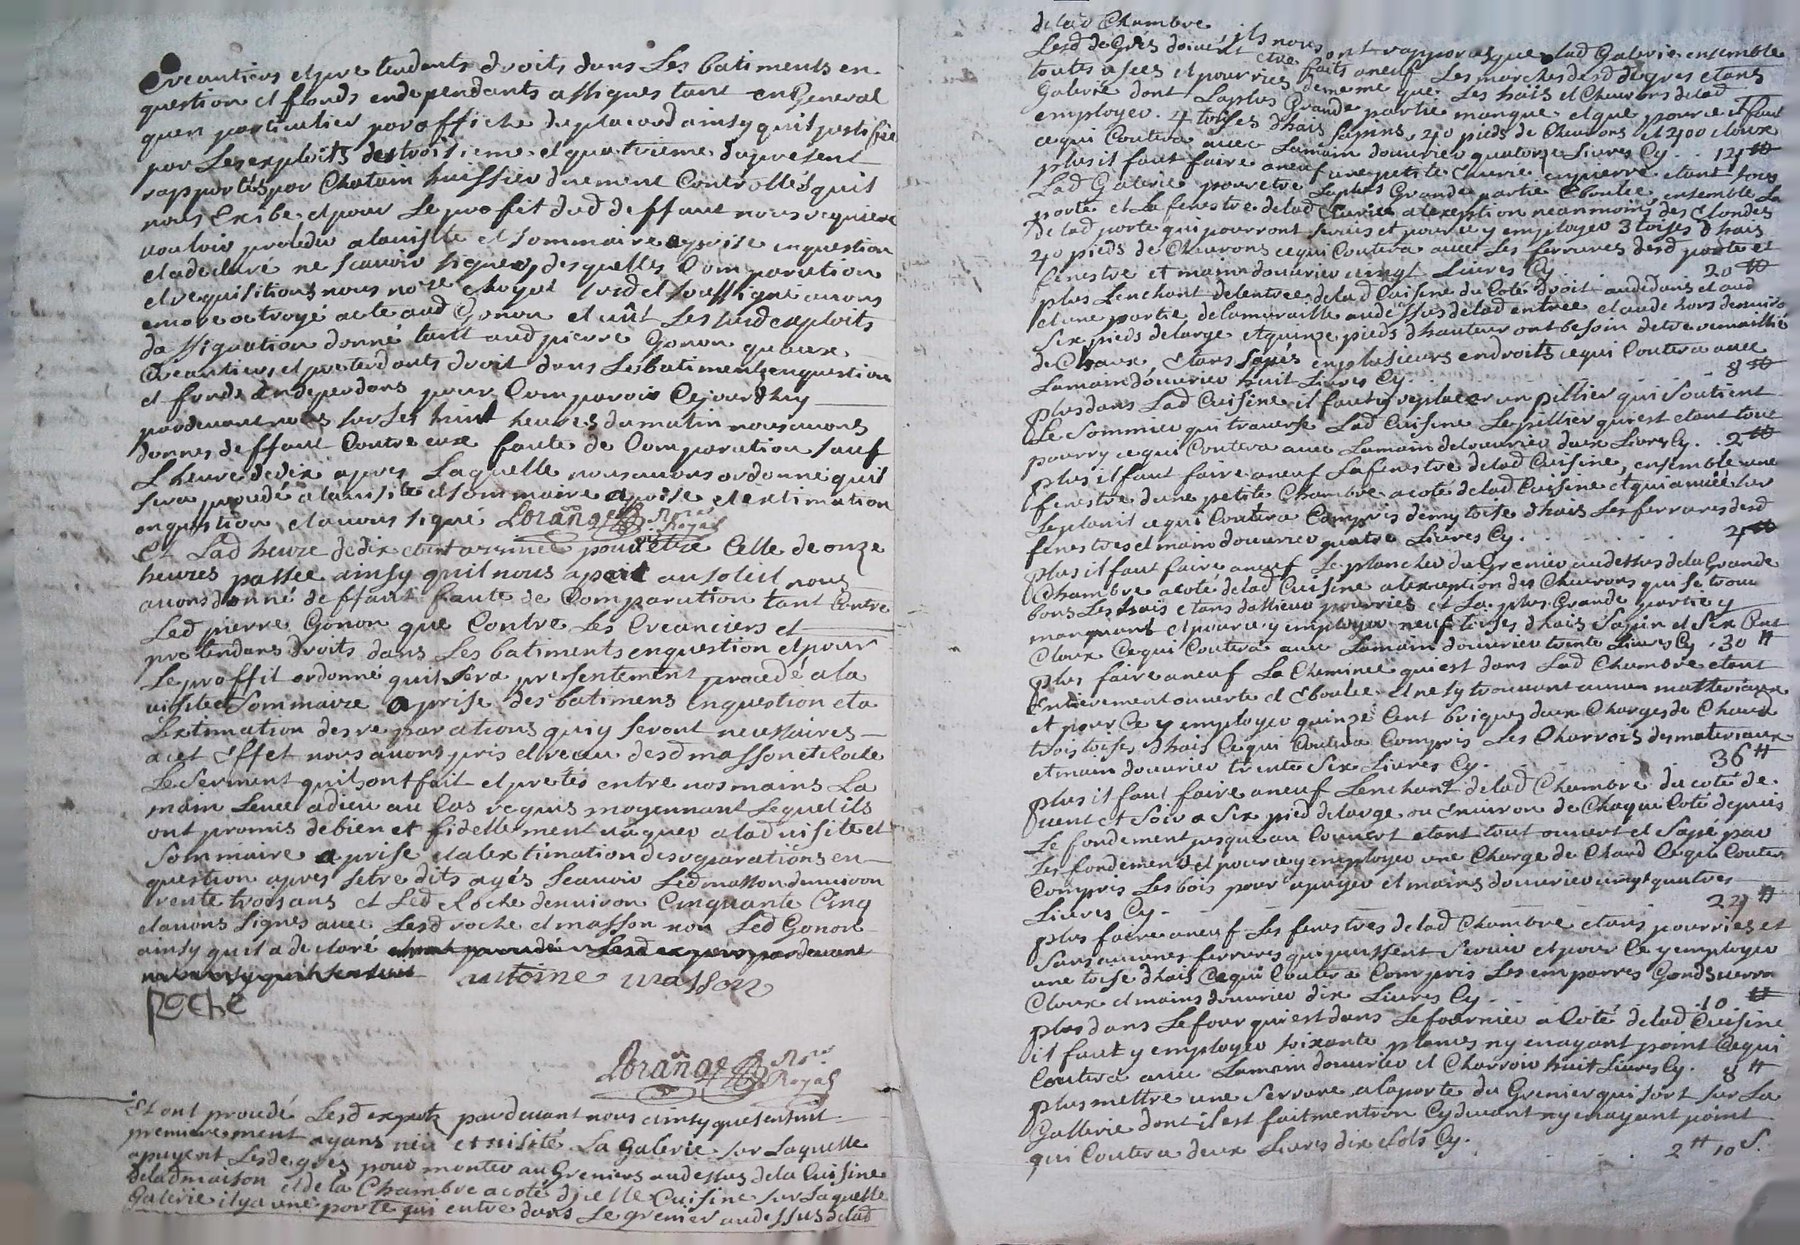 Creantiers et pretendants droits dans Les batiments en
question et fonds endependants assignes tant en General
quen particulier par affiche du placard ainsy quil justifie
par Les exploits des troisieme et quatrieme du present
rapportés par Chatain huissier duement Controllés quil
nous Exibe et pour Le profit dud deffaut nous requiere
vouloir proceder a la visitte et sommaire aprise en question
et a declaré ne scavoir signer, desquelles Comparution
et requisitions nous notre Royal susd et soussigné avons
encore octroyé acte aud Gonon et vût Les susd exploits
dassignation donné tant aud pierre Gonon quaux
Creantiers et pretendants droit dans Le batiments en question
et fonds en dependans pour Comparoir Cejourdhuy
pardevant nous sur Les huit heures du matin nous avons
donnes deffaut Contre eux faute de Comparution sauf
L heure de dix apres Laquelle nous avons ordonné quil
sera procedé a la visite et sommaire aprise et extimation
en question et avons signé Lorange Nore Royal
Et Lad heure de dix etant arrivée pour etre Celle de onze
heures passée ainsy quil nous aparit au soleil nous
avons donné deffaut faute de Comparution tant Contre
Led pierre Gonon que Contre Les Creanciers et
pretendans droits dans Les batiments en question et pour
Le proffit ordonné quil sera presentement procedé a la
visitte Sommaire aprise des batimens en question et a
Lextimation des reparations quiy seront necessaires
a cet Effet nous avons pris et receu desd masson et Roche
Le Serment quils ont fait et pretés entre nos mains La
main Levée a dieu au Cas requis moyennant Lequel ils
ont promis de bien et fidellement vaquer a lad visite et
Sommaire aprise et a lextimation des reparations en
question apres setre dits agés Scavoir Led masson denviron
trente trois ans et Led Roche denviron Cinquante Cinq
et avons signés avec Lesd roche et masson non Led Gonon
ainsy quil a declaré et ont procedé Lesd experts pardevant
nous ainsy quil sensuit antoine masson
Roche
Lorange Nore Royal
Et ont procedé Lesd experts pardevant nous ainsy que sensuit
premierement ayans veu et visité La Galerie sur Laquelle
apuyent Les degres pour monter au Greniers audessus de la Cuisine
de lad maison et de la Chambre a coté dicelle Cuisine sur Laquelle
Galerie il y a une porte qui entre dans Le grenier audessus de lad
de lad Chambre
ils nous ont rapporté que Lad Galerie ensemble
Lesd degrés doivent etre faits a neuf Les marches desd degres etans
toutes usées et pourries de meme que Les hais et Chevrons de lad
Galerie dont La plus Grande partie manque et que pour ce il faut
employer 4 toises dhais sapins, 40 pieds de Chevrons et 200 cloux
ce qui Coutera avec Lamain douvrier quatorze Livres Cy . . 14 tt
plus il faut faire a neuf une petite Ecurie en pierre etant sous
Lad Galerie pour etre La plus Grande partie Eboulée ensemble La
porte et La fenestre de lad Ecurie a lexeption neanmoins des Elondes
de lad porte qui pourront servir et pour ce y employer 3 toises dhais
40 pieds de Chevrons ce qui Coutera avec Les ferrures desd porte et
fenestre et main douvrier vingt Livres Cy 20 tt
plus Lenchant de lentrée de lad Cuisine du Coté droit au dedans et aud
et une partie de la muraille audessus de lad entrée et audehors denviron
Six pieds de large et quinze pieds dhauteur ont besoin detre remaillée
de Chaux Etans sapés en plusieurs endroits ce qui Coutera avec
Lamain douvrier huit Livres Cy 8 tt
plus dans Lad Cuisine il faut y replacer un pillier qui Soutient
Le Sommier qui traverse Lad Cuisine Le pillier qui est etant tout
pourry ce qui Coutera avec Lamain de louvrier deux Livres Cy . 2 tt
plus il faut faire a neuf La fenestre de lad Cuisine, ensemble une
fenestre dune petite Chambre a coté de lad Cuisine et qui a vuee sur
ce qui Coutera Compris demy toise dhais Les ferrures desd
fenestres et main douvrier quatre Livres Cy . 4 tt
plus il faut faire a neuf Le plancher du Grenier au dessus de la Grande
Chambre a coté de lad Cuisine a lexception des Chevrons qui se trouve
bons Les hais etans dallieur pourries et La plus Grande partie y
manquant et pour ce y employer neuf toises dhais Sapin et Six Cent
Cloux Ce qui Coutera avec Lamain douvrier trente Livres Cy . 30 tt
plus faire a neuf La Cheminée qui est dans Lad Chambre etant
Entierement ouverte et Eboulée et ne sy trouvant aucun matteriaux
et pour Ce y employer quinze Cent briques deux Charges de Chaud
trois toises dhais Ce qui Coutera Compris Les Charrois des materiaux
et main douvrier trente Six Livres Cy . 36 tt
plus il faut faire a neuf Lenchant de lad Chambre du coté de
vent et Soir a Six pied de large ou Environ de Chaque Coté depuis
Le fondement jusque au Couvert etant tout ouvert et Sapé par
Les fondement et pour ce y employer une Charge de Chaud Ce qui Couter
Compris Les bois pour apuyer et mains douvrier vingt quatre
Livres Cy - 24 tt
plus faire a neuf Les fenestres de lad Chambre etans pourries et
Sans aucunes ferrures qui puissent Servir et pour Ce y employer
une toise dhais Ce qui Coutera Compris Les emparres Gonds
Cloux et mains douvrier dix Livres Cy . 10 tt
plus dans Le four qui est dans Le fournier a Coté de lad Cuisine
il faut y employer soixante plannes ny en ayant point Ce qui
Coutera avec Lamain douvrier et Charroir huit Livres Cy . 8 tt
plus mettre une Serrure a la porte du Grenier qui sort Sur La
Gallerie dont il est fait mention Cydevant ny en ayant point
qui Coutera deux Livres dix Sols Cy . 2 tt 10 S.